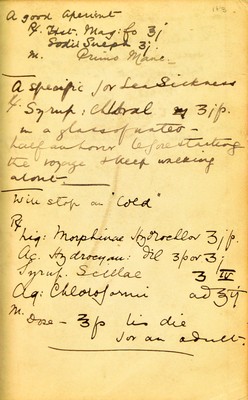 A good Aperient
℞ Mag: ʒj
Sodii ʒj.
m. Primo Mane
A specific for Sea Sickness
℞ Syrup: Chloral ʒjß.
in a glass of water –
half an hour before starting
the voyage & keep walking
about.
Will stop an "Cold"
℞
Liq: Morphinae Hydrochlor ʒjß.
Ac. Hydrocyan: dil ʒß or ʒj
Syrup. Scillae ʒ IV
Aq: Chloroformi ad ℥ij
M.
Dose – ʒß bis die
for an adult.